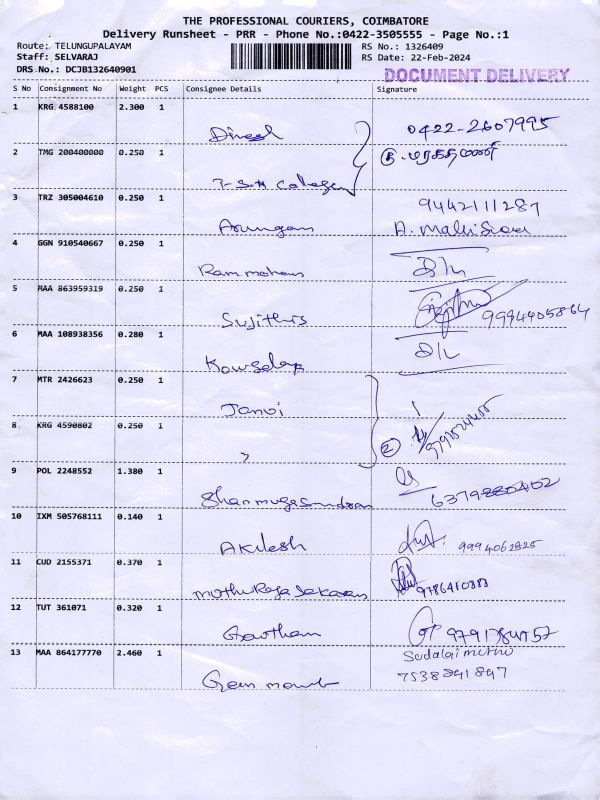 THE PROFESSIONAL COURIERS, COIMBATORE
Delivery Runsheet - PRR - Phone No.:0422-3505555 - Page No.:1
Route: TELUNGUPALAYAM RS No.: 1326409
Staff: SELVARAJ RS Date: 22-Feb-2024
DRS No.: DCJB132640901 DOCUMENT DELIVERY
S No Consignment No Weight PCS Consignee Details Signature
1 KRG 4588100 2.300 1
Dinesh 0422-2607995
2 TMG 200400000 0.250 1
College
3 TRZ 305004610 0.250 1 9442111287
Arungan
4 GGN 910540667 0.250 1
Ram mohan
5 MAA 863959319 0.250 1
Sujithis 9994405864
6 MAA 108938356 0.280 1
Kowsalya
7 MTR 2426623 0.250 1
Janvi
8 KRG 4590802 0.250 1
2
9 POL 2248552 1.380 1
Shanmugasundram
10 IXM 505768111 0.140 1
Akilesh 9994062825
11 CUD 2155371 0.370 1
Muthu Raja Sekaran
12 TUT 361071 0.320 1
Gowtham
13 MAA 864177770 2.460 1 Sudalai muthu
7538841897